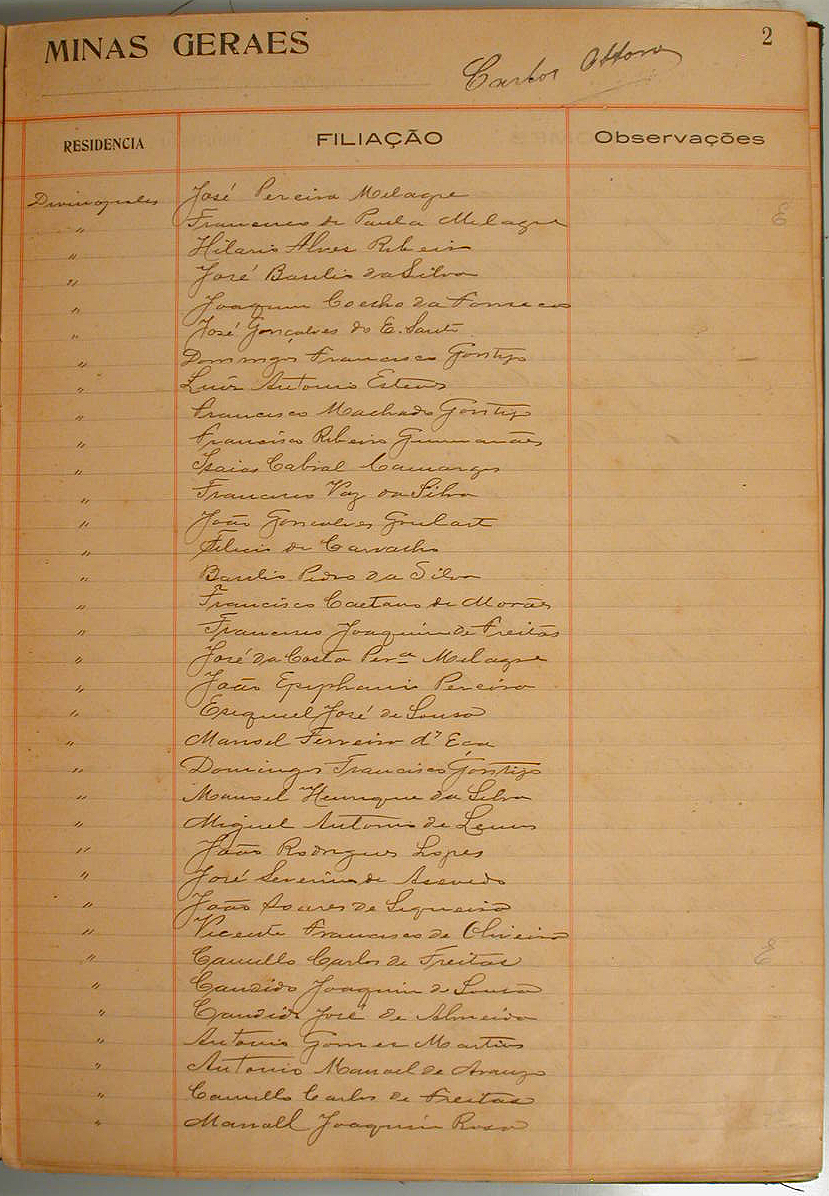 MINAS GERAES
2
Carlos Ottoni
RESIDENCIA FILIAÇÃO Observações
Divinopoles José Pereira Milagre
" Francisco de Paula Milagre E
" Hilario Alves Ribeiro
" José Basilio da Silva
" Joaquim Coelho da Fonseca
" José Gonçalves do E. Santo
" Domingos Francisco Gontijo
" Luis Antonio Esteves
" Francisco Machado Gontijo
" Francisco Ribeiro Guimarães
" Isaias Cabral Camargos
" Francisco Vaz da Silva
" João Gonçalves Goulart
" Felicio de Carvalho
" Basilio Pedro da Silva
" Francisco Caetano de Morães
" Francisco Joaquim de Freitas
" José da Costa Perª Milagre
" João Epiphanio Pereira
" Esequiel José de Sousa
" Manoel Ferreira d'Eça
" Domingos Francisco Gontijo
" Manoel Henrique da Silva
" Miguel Antonio de Lemos
" João Rodrigues Lopes
" José Severino de Asevedo
" João Soares de Siqueira
" Vicente Francisco de Oliveira
" Camillo Carlos de Freitas E
" Candido Joaquim de Sousa
" Candido José de Almeida
" Antonio Gomes Martins
" Antonio Manoel de Araujo
" Camillo Carlos de Freitas
" Manoel Joaquim Rosa